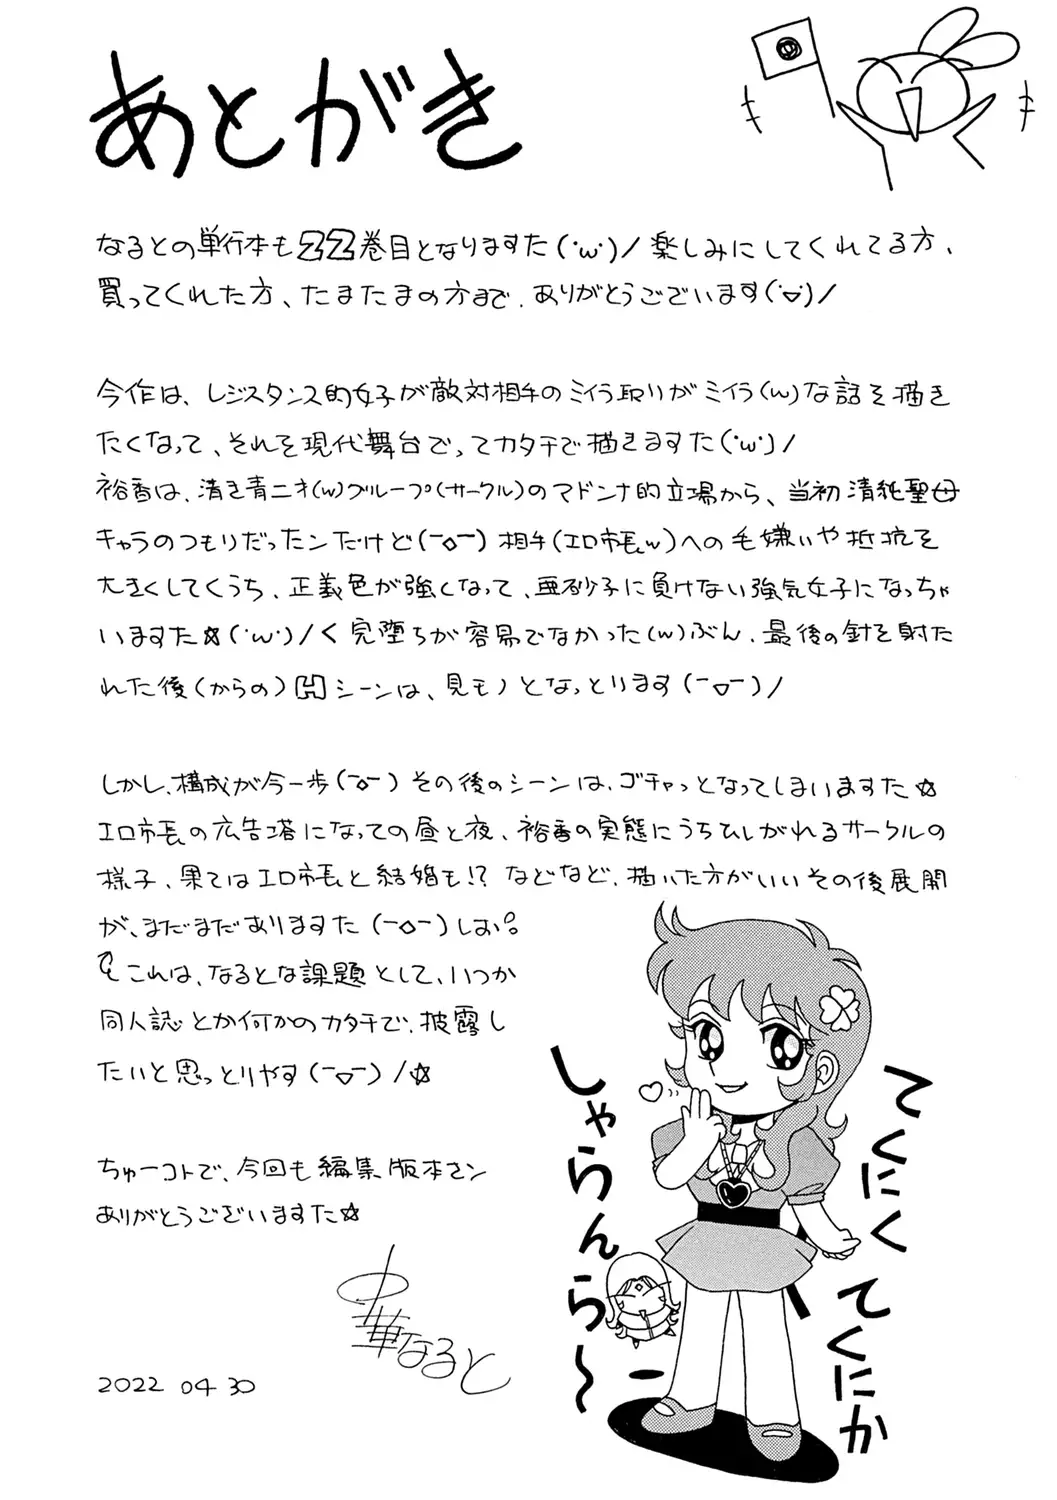 あとがき
なるとの単行本も22巻目となりますた(･ω･)/楽しみにしてくれてる方、
買ってくれた方、たまたまの方まで、ありがとうございます(･▽･)/
今作は、レジスタンス的女子が敵対相手のミイラ取りがミイラ(w)な話を描き
たくなって、それを現代舞台でってカタチで描きますた(･ω･)/
裕香は、清き青二才(w)グループ(サークル)のマドンナ的立場から、当初清純聖母
キャラのつもりだったンだけど(ー◇ー)相手(エロ市長w)への毛嫌いや抵抗を
大きくしてくうち、正義色が強くなって、亜砂子に負けない強気女子になっちゃ
いますた☆(･ω･)/く完堕ちが容易でなかった(w)ぶん、最後の針を射た
れた後(からの)Hシーンは、見モノとなっとります(ー▽ー)/
しかし、構成が今一歩(ー◇ー)その後のシーンは、ゴチャっとなってしまいますた☆
エロ市長の広告塔になっての昼と夜、裕香の実態にうちひしがれるサークルの
様子、果てはエロ市長と結婚も!?などなど、描いた方がいいその後展開
が、まだまだありますた(ー◇ー)しお。
これは、なるとな課題として、いつか
同人誌とか何かのカタチで、披露し
たいと思っとりやす(ー▽ー)/☆
ちゅーコトで、今回も編集版本サン
ありがとうございますた☆
中華なると
2022 04 30
てくにく
てくにか
しゃらんら〜